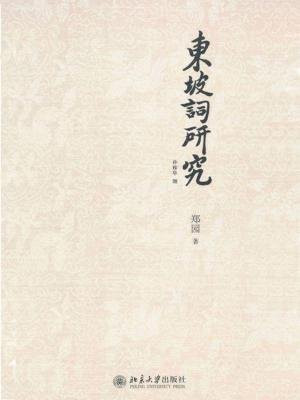 東坡詞研究
郑园
著
北京大学出版社
PEKING UNIVERSITY PRESS